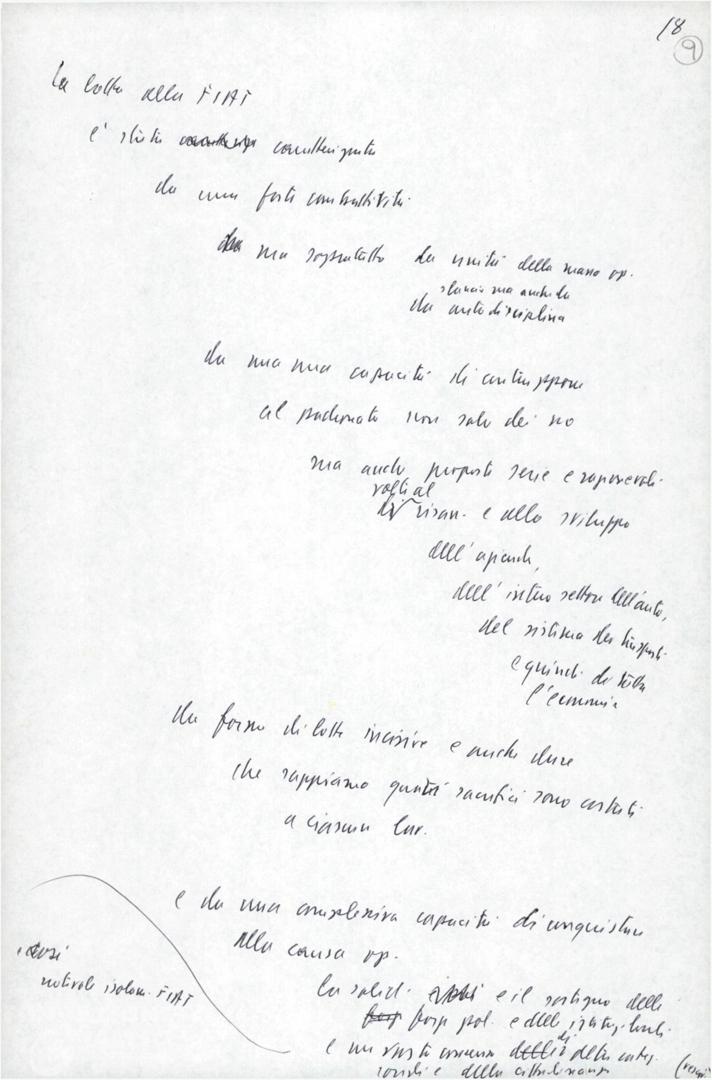 18
9
La lotta alla FIAT
è stata caratterizzata
da una forte combattività
ma soprattutto da unità della massa op.
slancio ma anche da
da autodisciplina
da una capacità di contrapporre
al padronato non solo dei no
ma anche proposte serie e ragionevoli
volti al
risan. e allo sviluppo
dell'azienda,
dell'intero settore dell'auto,
del sistema dei trasporti
e quindi di tutta
l'economia
da forme di lotta incisive e anche dure
che sappiamo quanti sacrifici sono costati
a ciascun lav.
e da una complessiva capacità di conquistare
alla causa op.
così
notevole isolam. FIAT
la solid. e il sostegno delle
forze pol. e delle istituz. locali
e un vasto consenso di
e della cittadinanza